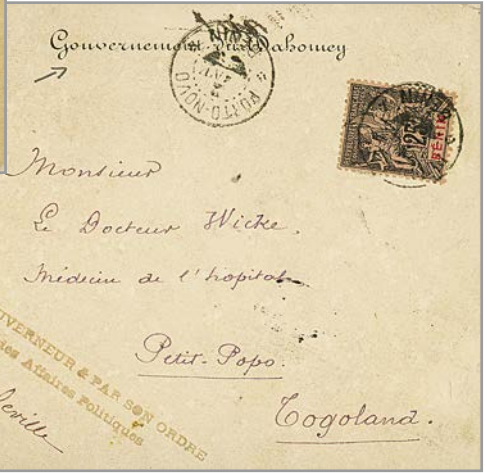 Gouvernement du Dahomey
PORTO-NOVO
BENIN
25
BÉNIN
Monsieur
Le Docteur Wicke.
Médecin de l'hopital
Petit-Popo.
Togoland.
UVERNEUR & PAR SON ORDRE
des Affaires Politiques